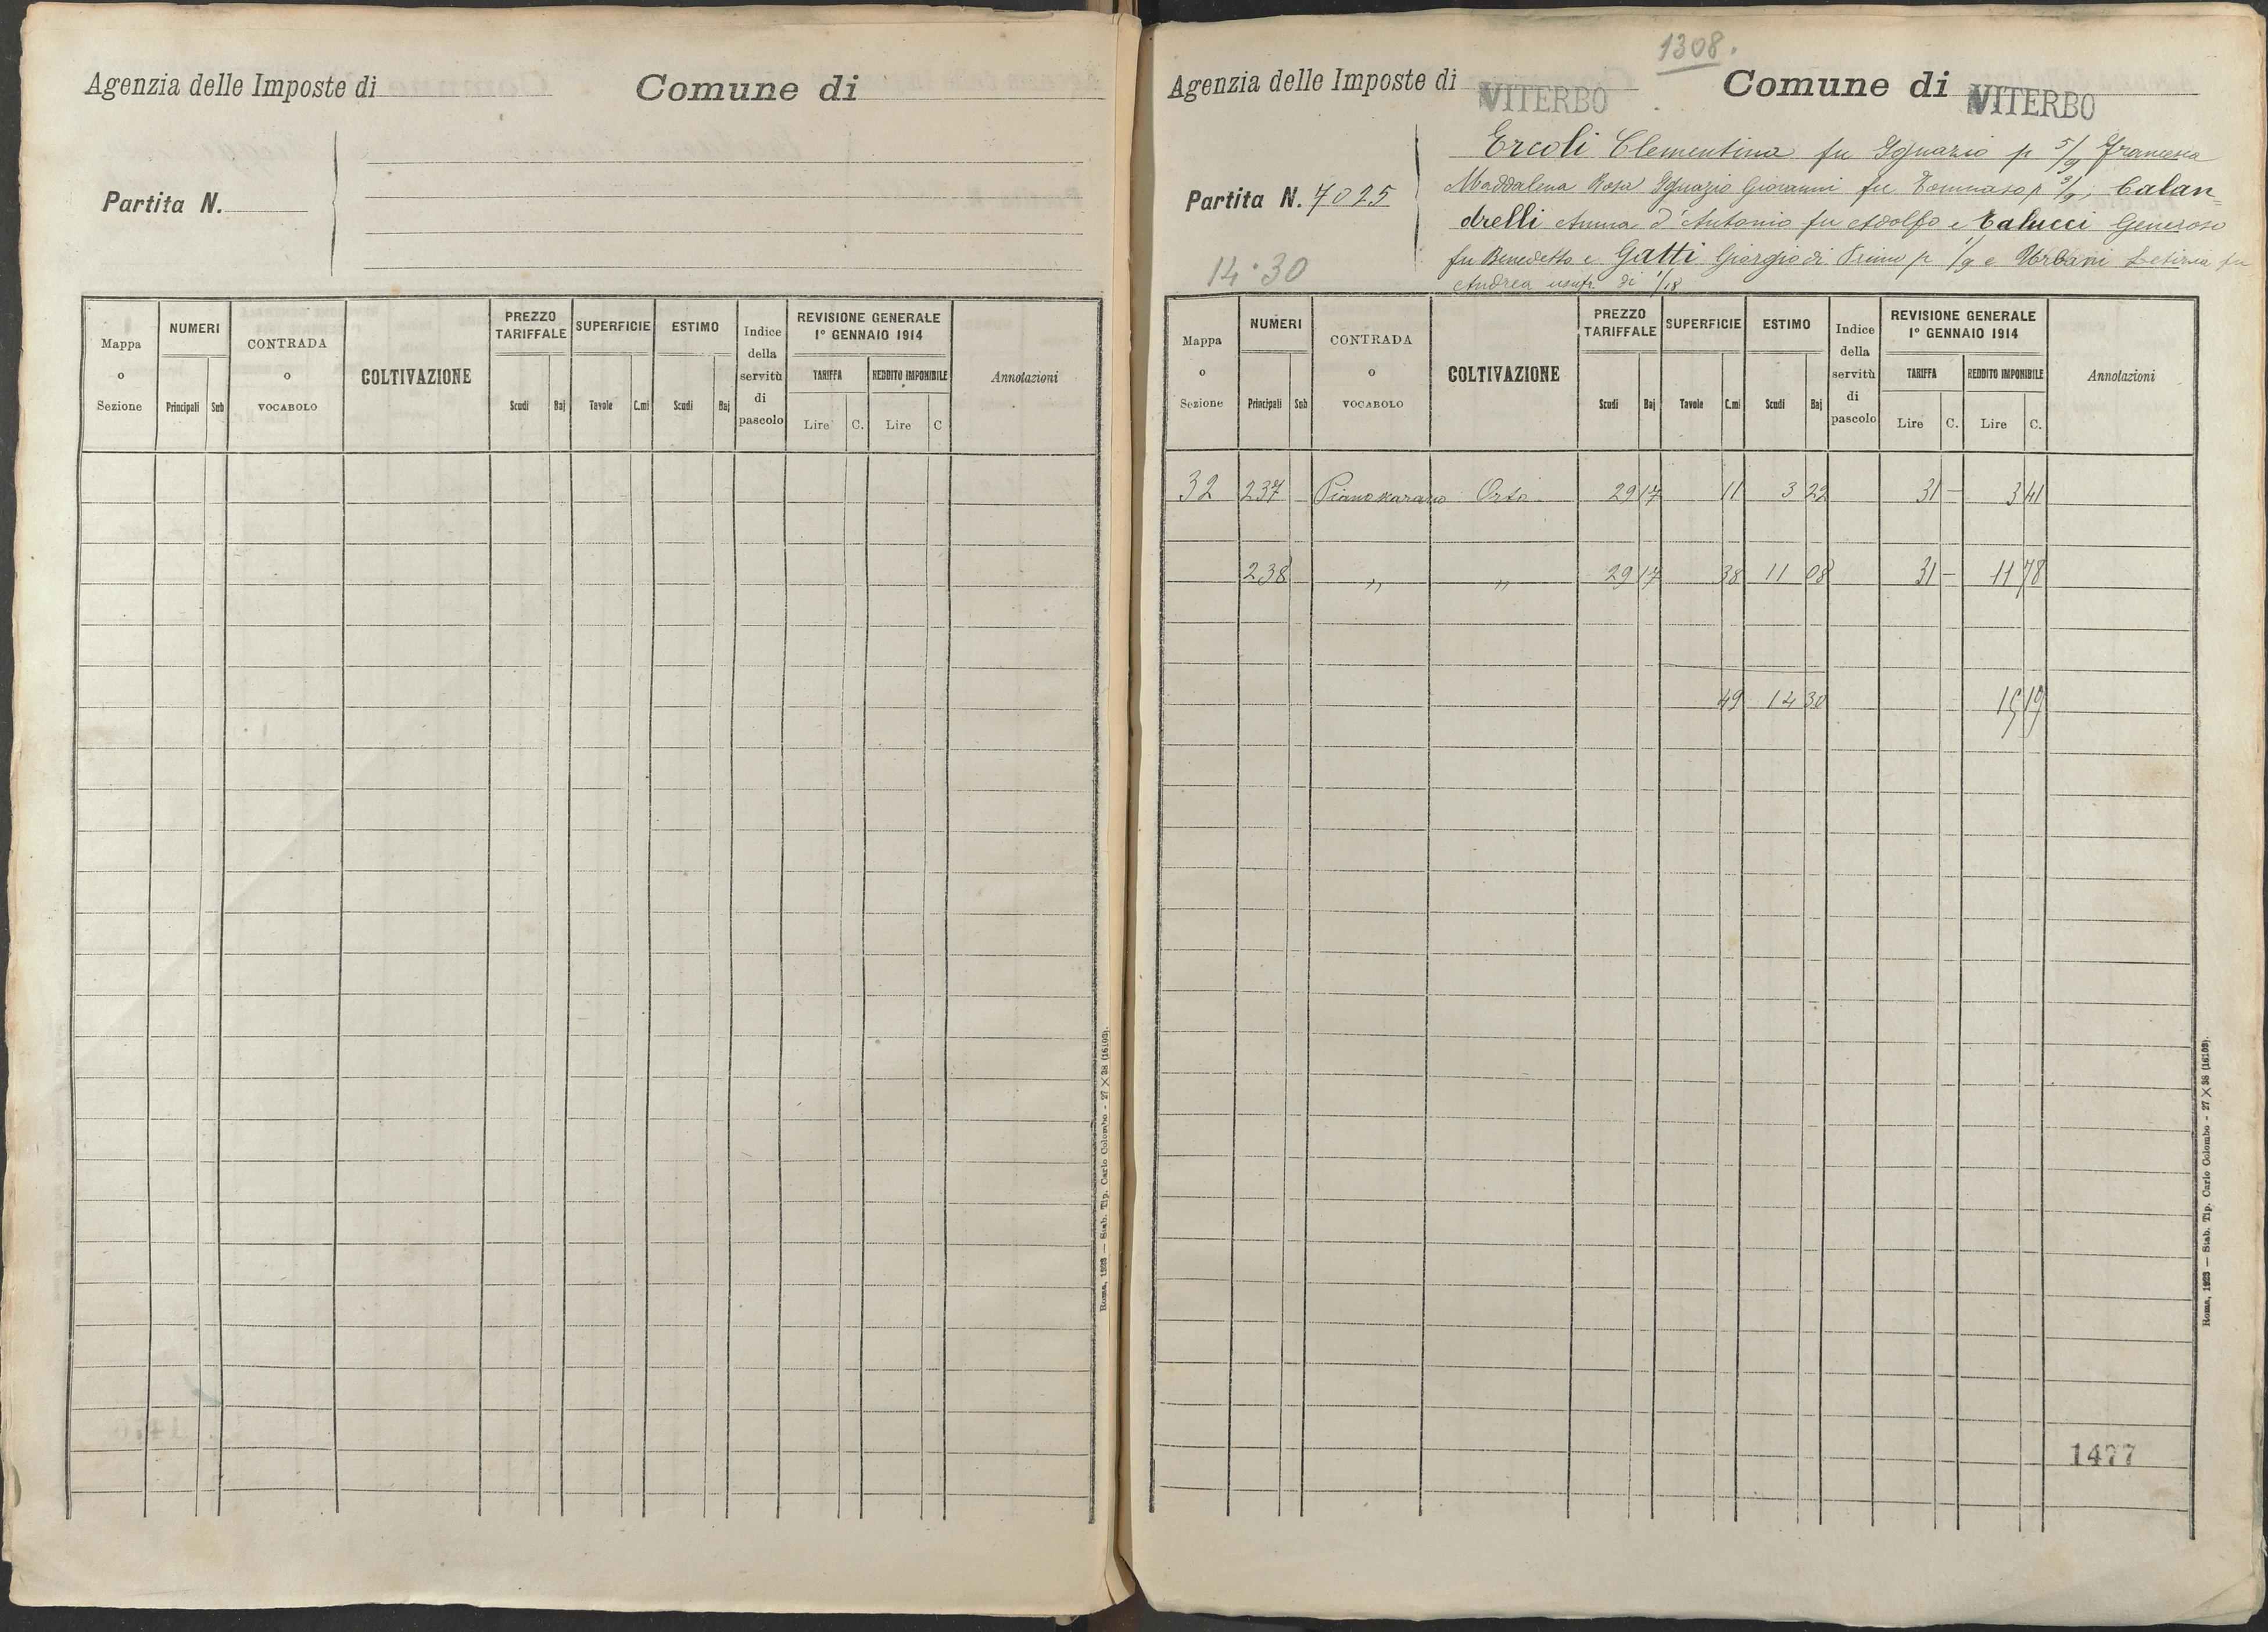 Agenzia delle Imposte di Comune di
Partita N.
Mappa o Sezione NUMERI Principali Sub CONTRADA o VOCABOLO COLTIVAZIONE PREZZO TARIFFALE Scudi Baj SUPERFICIE Tavole C.mi ESTIMO Scudi Baj Indice della servitù di pascolo REVISIONE GENERALE 1º GENNAIO 1914 TARIFFA Lire C. REDDITO IMPONIBILE Lire C Annotazioni
Roma, 1923 — Stab. Tip. Carlo Colombo - 27 × 38 (16103).
1308.
Agenzia delle Imposte di VITERBO Comune di VITERBO
Ercoli Clementina fu Ignazio p 5/9 Francesca
Partita N. 7025
Maddalena Rosa Ignazio Giovanni fu Tommaso p 3/9, Calan=
drelli Anna d'Antonio fu Adolfo e Talucci Generoso
fu Benedetto e Gatti Giorgio di Primo p 1/9 e Urbani Letizia fu
Andrea usufr. di 1/18
14.30
Mappa o Sezione NUMERI Principali Sub CONTRADA o VOCABOLO COLTIVAZIONE PREZZO TARIFFALE Scudi Baj SUPERFICIE Tavole C.mi ESTIMO Scudi Baj Indice della servitù di pascolo REVISIONE GENERALE 1º GENNAIO 1914 TARIFFA Lire C. REDDITO IMPONIBILE Lire C. Annotazioni
32 237 Pianoscarano Orto 29 17 11 3 22 31 — 3 41
238 " " 29 17 38 11 08 31 — 11 78
49 14 30 15 19
1477
Roma, 1923 — Stab. Tip. Carlo Colombo - 27 × 38 (16103).